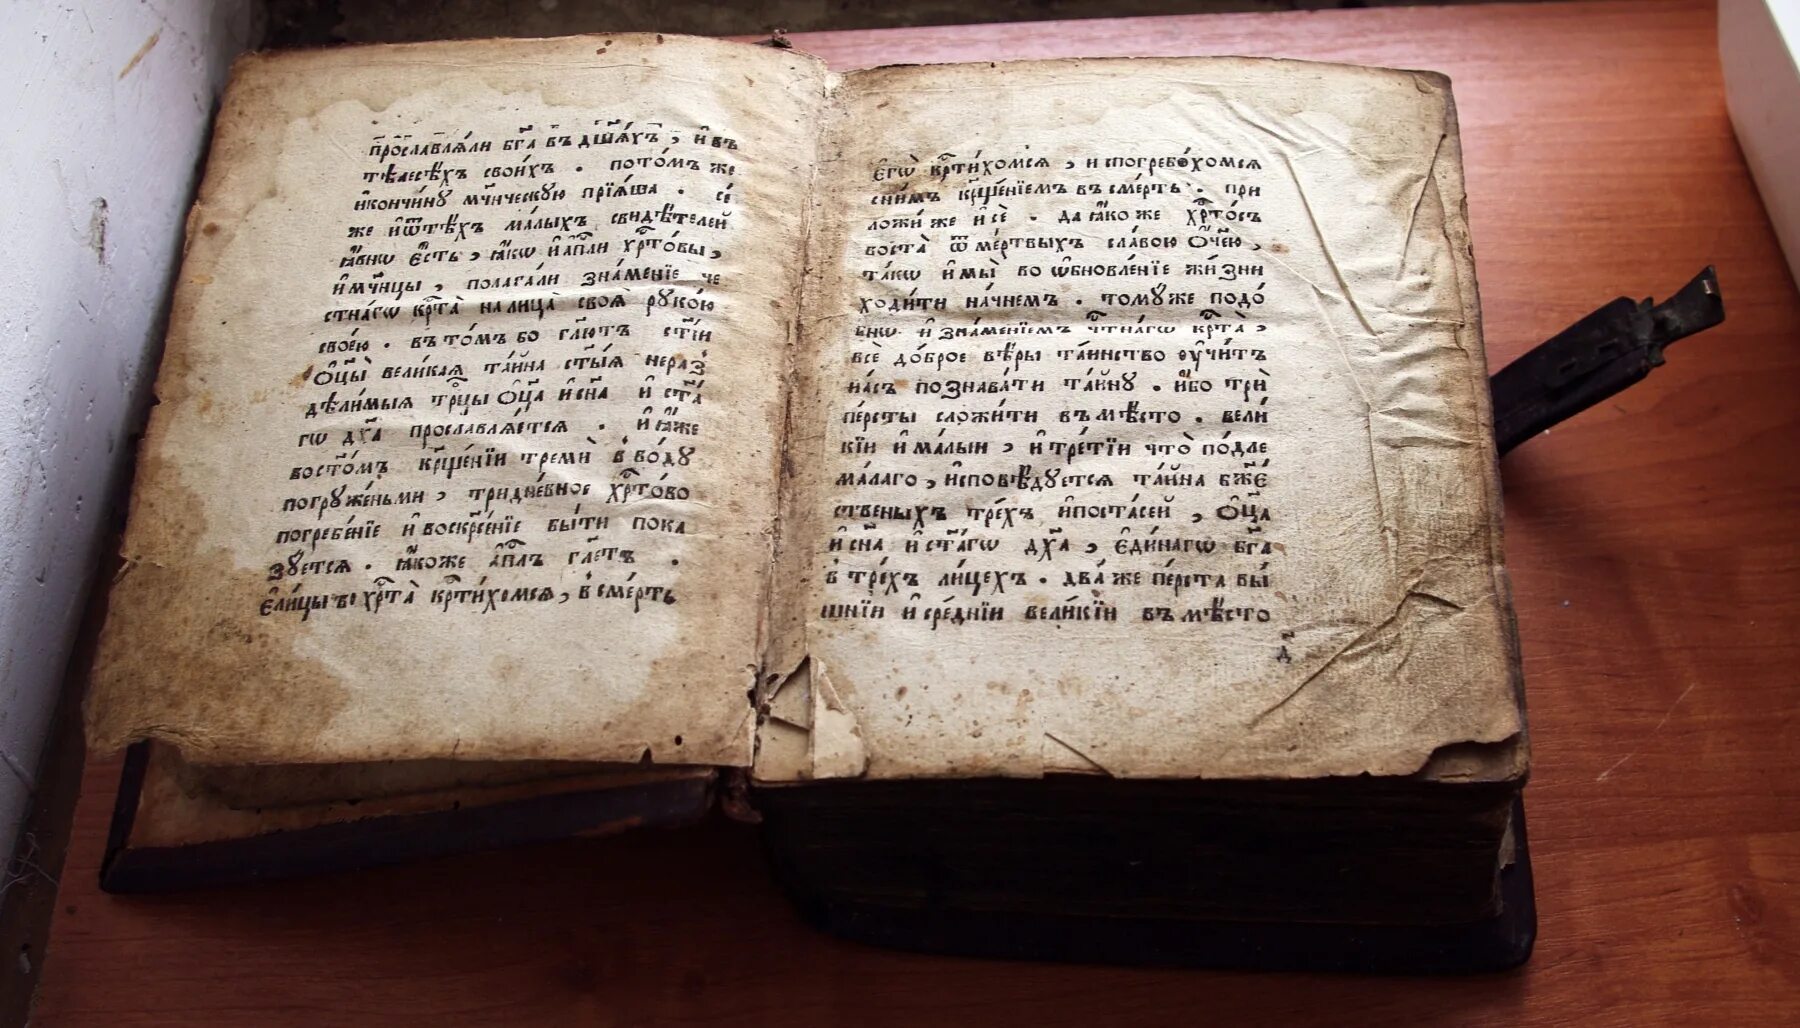 прⷭ҇ославлѧ́ли бг҃а въ дш҃а́хъ, и҆ въ
тѣлесѣ́хъ свои́хъ . пото́мъ же
и҆ кончи́ну мч҃ническую прїѧ́ша . се́
же и҆ ѿ тѣ́хъ ма́лыхъ свидѣ́телей
ꙗ҆́внѡ є҆́сть, ꙗ҆́кѡ и҆ а҆пⷭ҇ли хрⷭ҇то́вы,
и҆ мч҃нцы, полага́ли зна́менїе че
стна́гѡ крⷭ҇та̀ на лица̀ своѧ̀ руко́ю
свое́ю . въ то́мъ бо гл҃ютъ ст҃і́и
ѻ҆ц҃ы̀ вели́каѧ та́йна ст҃ы́ѧ нераз̾
дѣли́мыѧ трⷪ҇цы ѻ҆ц҃а̀ и҆ сн҃а и҆ ст҃а́
гѡ дх҃а прославлѧ́етсѧ . и҆ ꙗ҆́же
во ст҃о́мъ крⷭ҇ще́нїи тремѝ в̾ во́ду
погруже́ньми, тридне́вное хрⷭ҇то́во
погребе́нїе и҆ воскрⷭ҇е́нїе бы́ти пока
зꙋ́етсѧ . ꙗ҆́коже а҆пⷭ҇лъ гл҃етъ .
є҆ли́цы во хрⷭ҇та̀ крⷭ҇ти́хомсѧ, в̾ сме́рть
є҆гѡ̀ крⷭ҇ти́хомсѧ, и спогребо́хомсѧ
с ни́мъ крⷭ҇ще́нїемъ въ сме́рть . при
ложи́ же и҆ сѐ . да ꙗ҆́коже хрⷭ҇то́съ
воста̀ ѿ ме́ртвыхъ сла́вою ѻ҆́ч҃ею,
та́кѡ и҆ мы̀ во ѡ҆бновле́нїе жи́зни
ходи́ти на́чнемъ . томуже подо́
бнѡ и҆ зна́менїемъ чⷭ҇тна́гѡ крⷭ҇та̀,
всѐ до́брое вѣ́ры та́инство ᲂу҆чи́тъ
на́съ познава́ти та́йну . и҆́бо трѝ
пе́рсты сложи́ти въмѣ́сто . вели́
кїи и҆ ма́лыи, и҆ тре́тїи что̀ по́дле
ма́лаго, и҆сповѣ́дуетсѧ та́йна бж҃е́
ственыхъ тре́хъ и҆поста́сей, ѻ҆ц҃а
и҆ сн҃а и҆ ст҃а́гѡ дх҃а, є҆ди́нагѡ бг҃а
в̾ тре́хъ ли́цехъ . два́ же пе́рста вы́
шнїи и҆ сре́днїи вели́кїи въ мѣ́сто
д҃